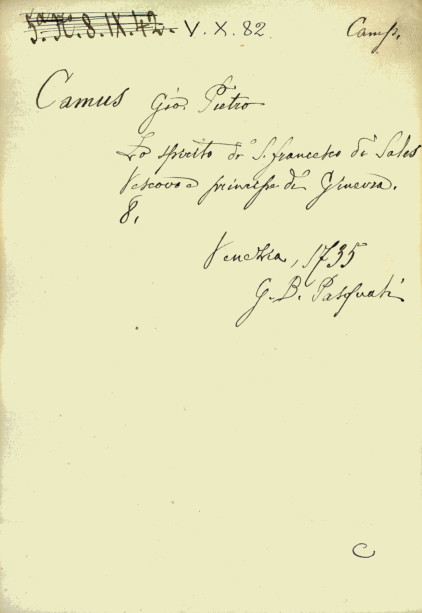 5a. N. 8. IX. 42. V. X. 82 Camp.
Camus Gio. Pietro
Lo spirito di S. Francesco di Sales
Vescovo e principe di Ginevra.
8.
Venezia, 1735
G. B. Pasquali
C